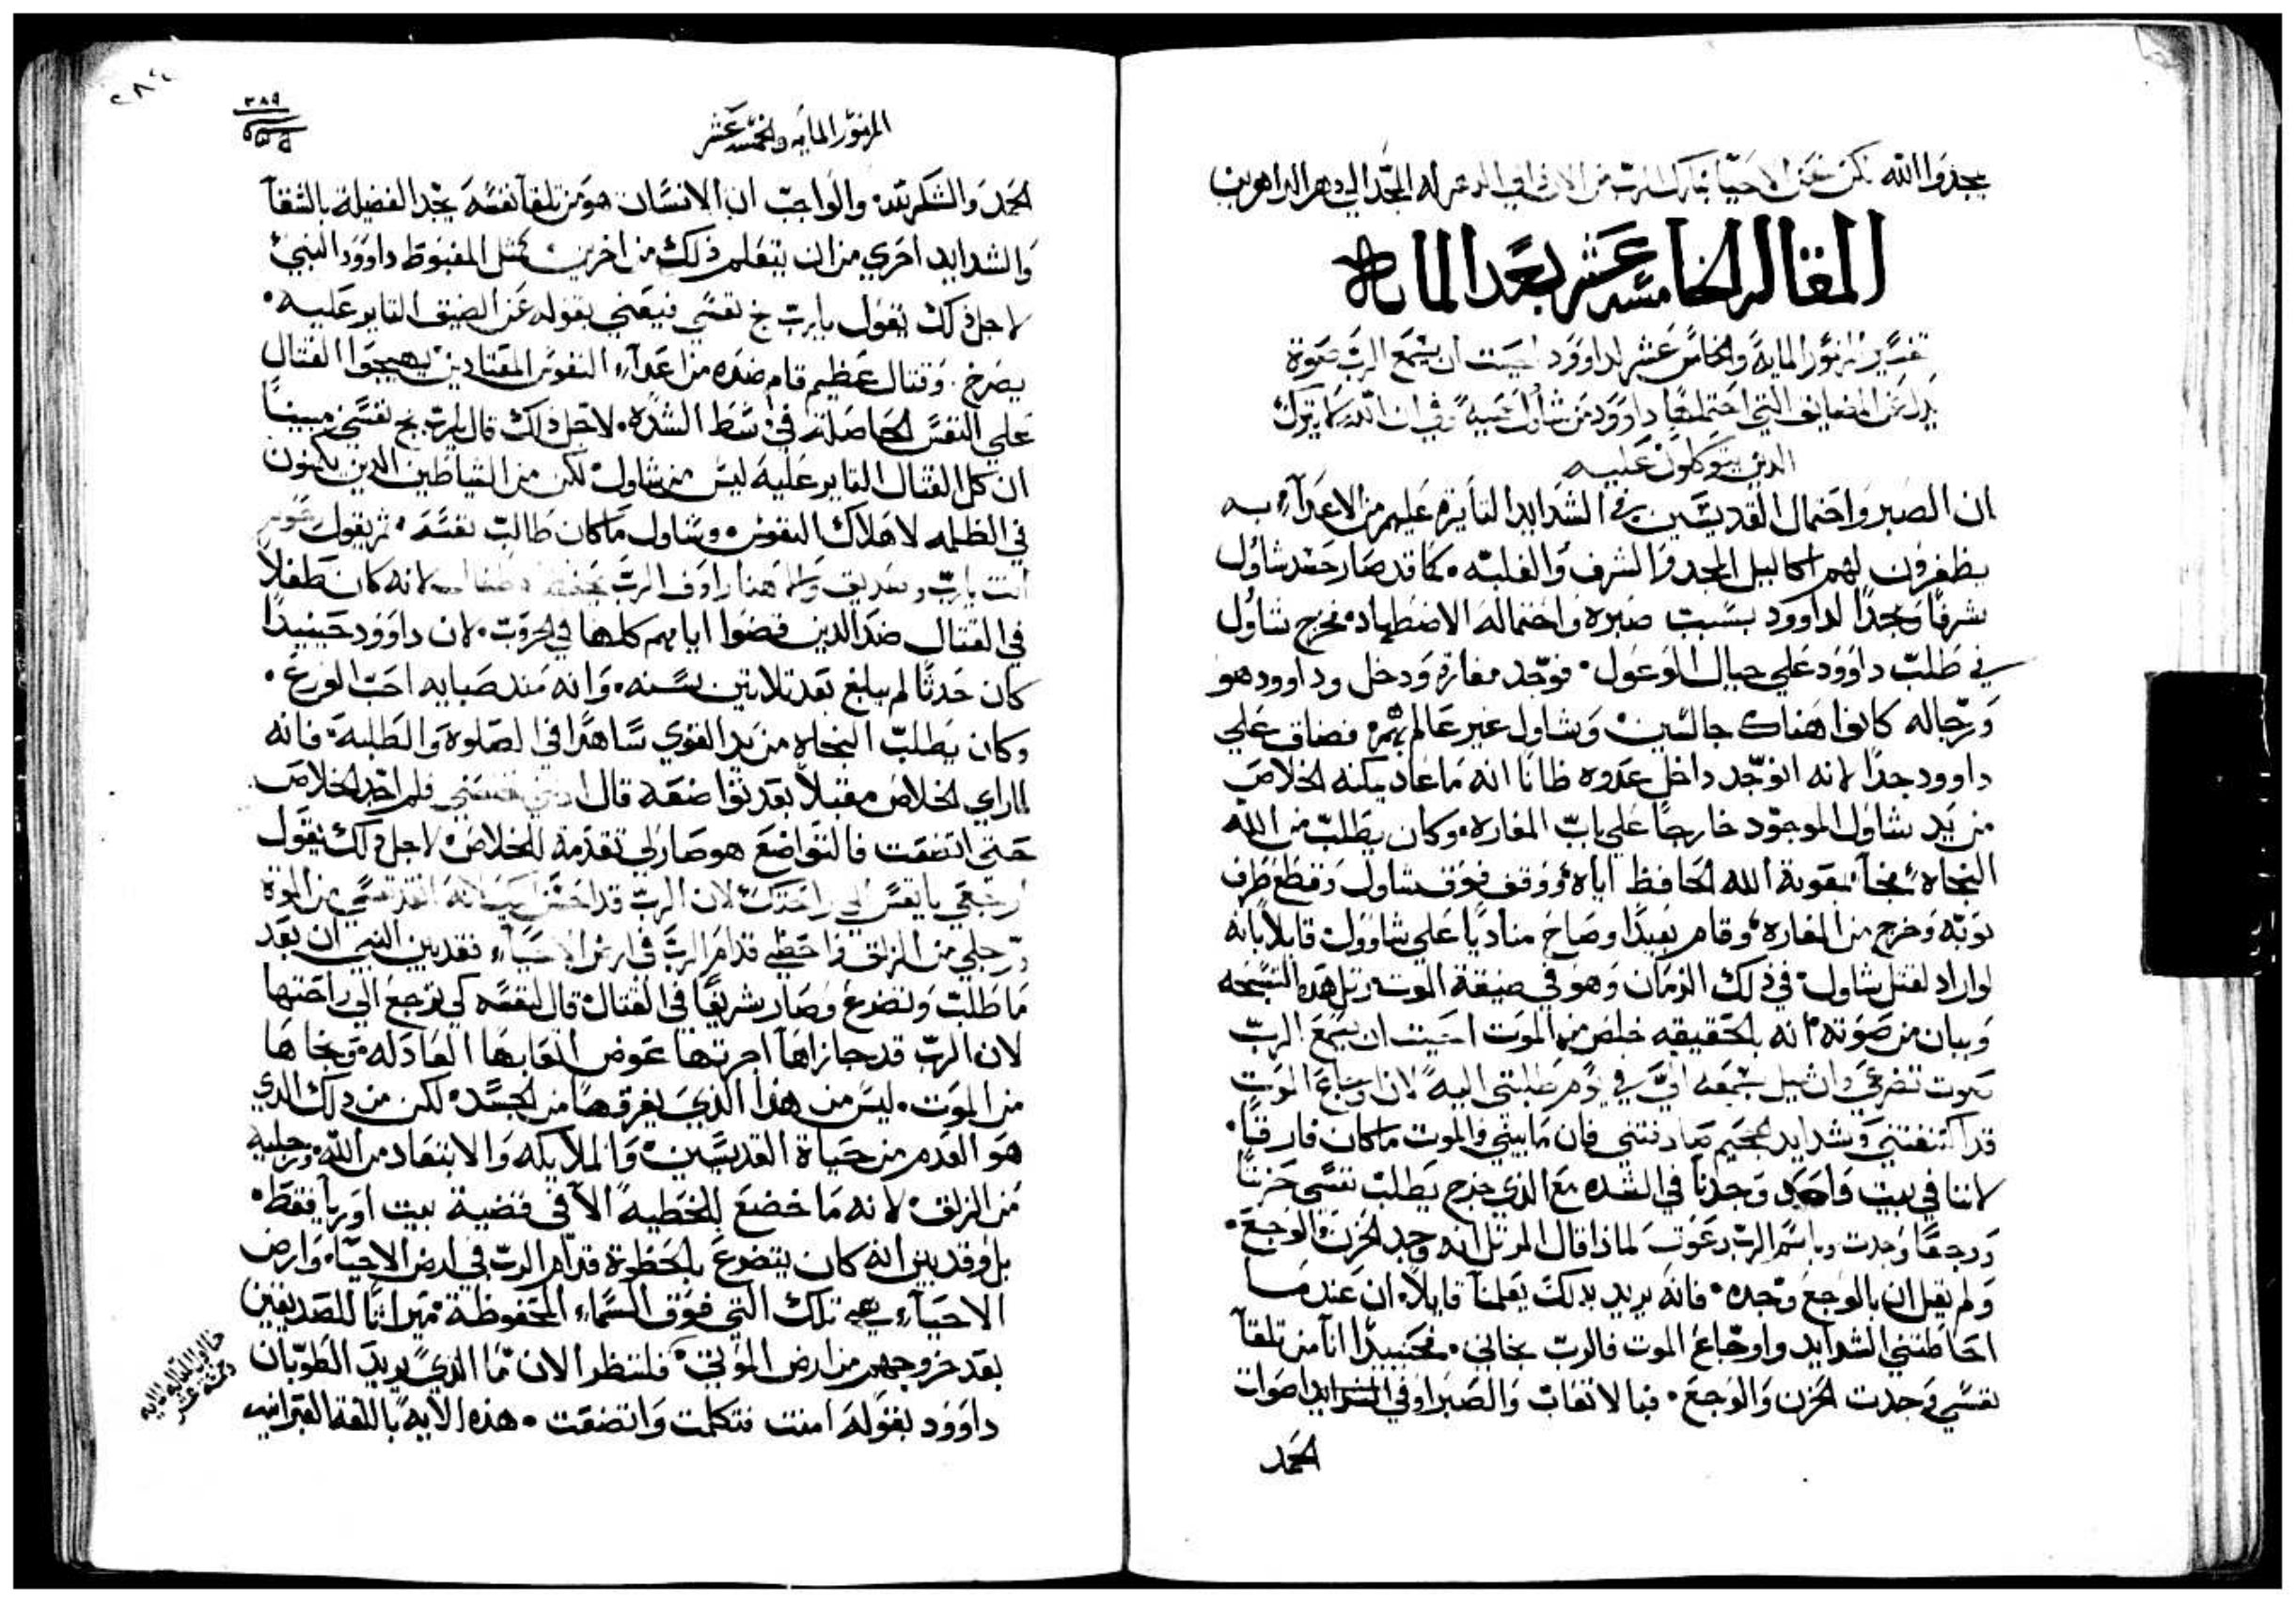 يمجدوا الله لكن نحن الاحيا نبارك الرب من الان والي الدهر له المجد الي دهر الداهرين
المقاله الخامسه عشر بعد المايه
تفسير المزمور المايه والخامس عشر لداوود احببت ان يسمع الرب صوت
يدل عن المضايق التي احتملها داوود من شاول حميه وفي ان الله لا يترك
الدين يتوكلون عليه
ان الصبر واحتمال القديسين في الشدايد الثايره عليهم من الاعدآء به
يظفرون لهم اكاليل المجد والشرف والغلبه • كما قد صار حسد شاول
شرفًا ومجدًا لداوود بسبب صبره واحتماله الاضطهاد • فخرج شاول
في طلب داوود علي جبال الوعول • فوجد مغارة ودخل وداوود هو
ورجاله كانوا هناك جالسين • وشاول غير عالم بهم • فضاق علي
داوود جدًا لانه انوجد داخل عدوه ظانًا انه ما عاد يمكنه الخلاص
من يد شاول الموجود خارجًا علي باب المغاره • وكان يطلب من الله
النجاه • فنجآ بمعونة الله الحافظ اياه • ووقف فوق شاول وقطع طرف
ثوبه وخرج من المغاره • وقام بعيدًا وصاح مناديًا علي شاوول قايلاً بانه
لو اراد لقتل شاول • في ذلك الزمان وهو في ضيقة الموت رتل هذه التسبحه
وبيان من صوته انه بالحقيقه خلص من الموت احببت ان يسمع الرب
صوت تضرعي وان يميل بسمعه اليَّ في يوم طلبتي اليه لان اوجاع الموت
قد اكتنفتني وشدايد الجحيم صادفتني فان ما بيني والموت ما كان فارقًا •
لاننا في بيت واحد وجدنا في الشده مع الذي خرج يطلب نفسي حزنًا
ووجعًا وجدت وباسم الرب دعوت لماذا قال المرتل انه وجد الحزن والوجع •
ولم يقل ان بالوجع وجده • فانه يريد بدلك يعلمنآ قايلاً • ان عندما
احاطتني الشدايد واوجاع الموت فالرب نجاني • فحينيدًا انآ من تلقآ
نفسي وجدت الحزن والوجع • فبالاتعاب والصبر اوفي الشدايد اصوات
الحمد
المزمور المايه والخمسه عشر
٣٨٩
الحمد والشكر لله • والواجب ان الانسان هو من تلقآ نفسه يجد الفضيله بالشقآ
والشدايد احري من ان يتعلم ذلك من اخرين • كمثل المغبوط داوود النبي
لاجل ذلك يقول يا رب نج نفسي فيعني بقوله عن الضيق الثاير عليه •
يصرخ • وقتال عظيم قام ضده من اعدآء النفوس المعتادين يهيجوا القتال
علي النفس الحاصله في وسط الشده • لاجل ذلك قال يارب نج نفسي مبينًا
ان كل القتال الثاير عليه ليس من شاول • لكن من الشياطين الدين يكمنون
في الظلمه لاهلاك النفوس • وشاول ما كان طالب نفسه • ثم يقول
انت يارب وصديق والاهنا راوف الرب يحفظ الاطفال لانه كان طفلاً
في القتال ضد الدين قضوا ايامهم كلها في الحروب • لان داوود حينيدًا
كان حدثًا لم يبلغ بعد تلاتين سنه • وانه مند صبايه احب الورع •
وكان يطلب النجاه من يد القوي ساهرًا في الصلوة والطلبه • فانه
لما راي الخلاص مقبلاً بعد تواضعه قال فلم اجد الخلاص
حتي اتضعت فالتواضع هو صار لي تقدمة للخلاص • لاجل ذلك يقول
ارجعي يا نفس الي راحتك لان الرب قد احسن لانه انقذ نفسي من الموت
ورجلي من الزلق واحظي قدام الرب في ارض الاحيآء فقد بين النبي ان بعد
ما طلب وتضرع وصار شريفًا في القتال قال لنفسه كي ترجع الي راحتها
لان الرب قد جازاهآ اجرتها عوض اتعابها العادله • ونجاها
من الموت • ليس من هذا الذي يغرقها من الجسد • لكن من ذلك الذي
هو العدم من حياة القديسين • والملايكه والابتعاد من الله • ورجليه
من الزلق • لانه ما خضع للخطيه الا في قضية بيت اوريا فقط •
بل وقد بين انه كان يتضرع بالحظوة قدام الرب في ارض الاحيآء • وارض
الاحيآء هي تلك التي فوق السماء المحفوظة • ميراثًا للصديقين
بعد خروجهم من ارض الموتي • فلننظر الان ما الذي يريد الطوبان
داوود بقوله امنت فتكلمت واتضعت • هذه الايه باللغة العبرانيه